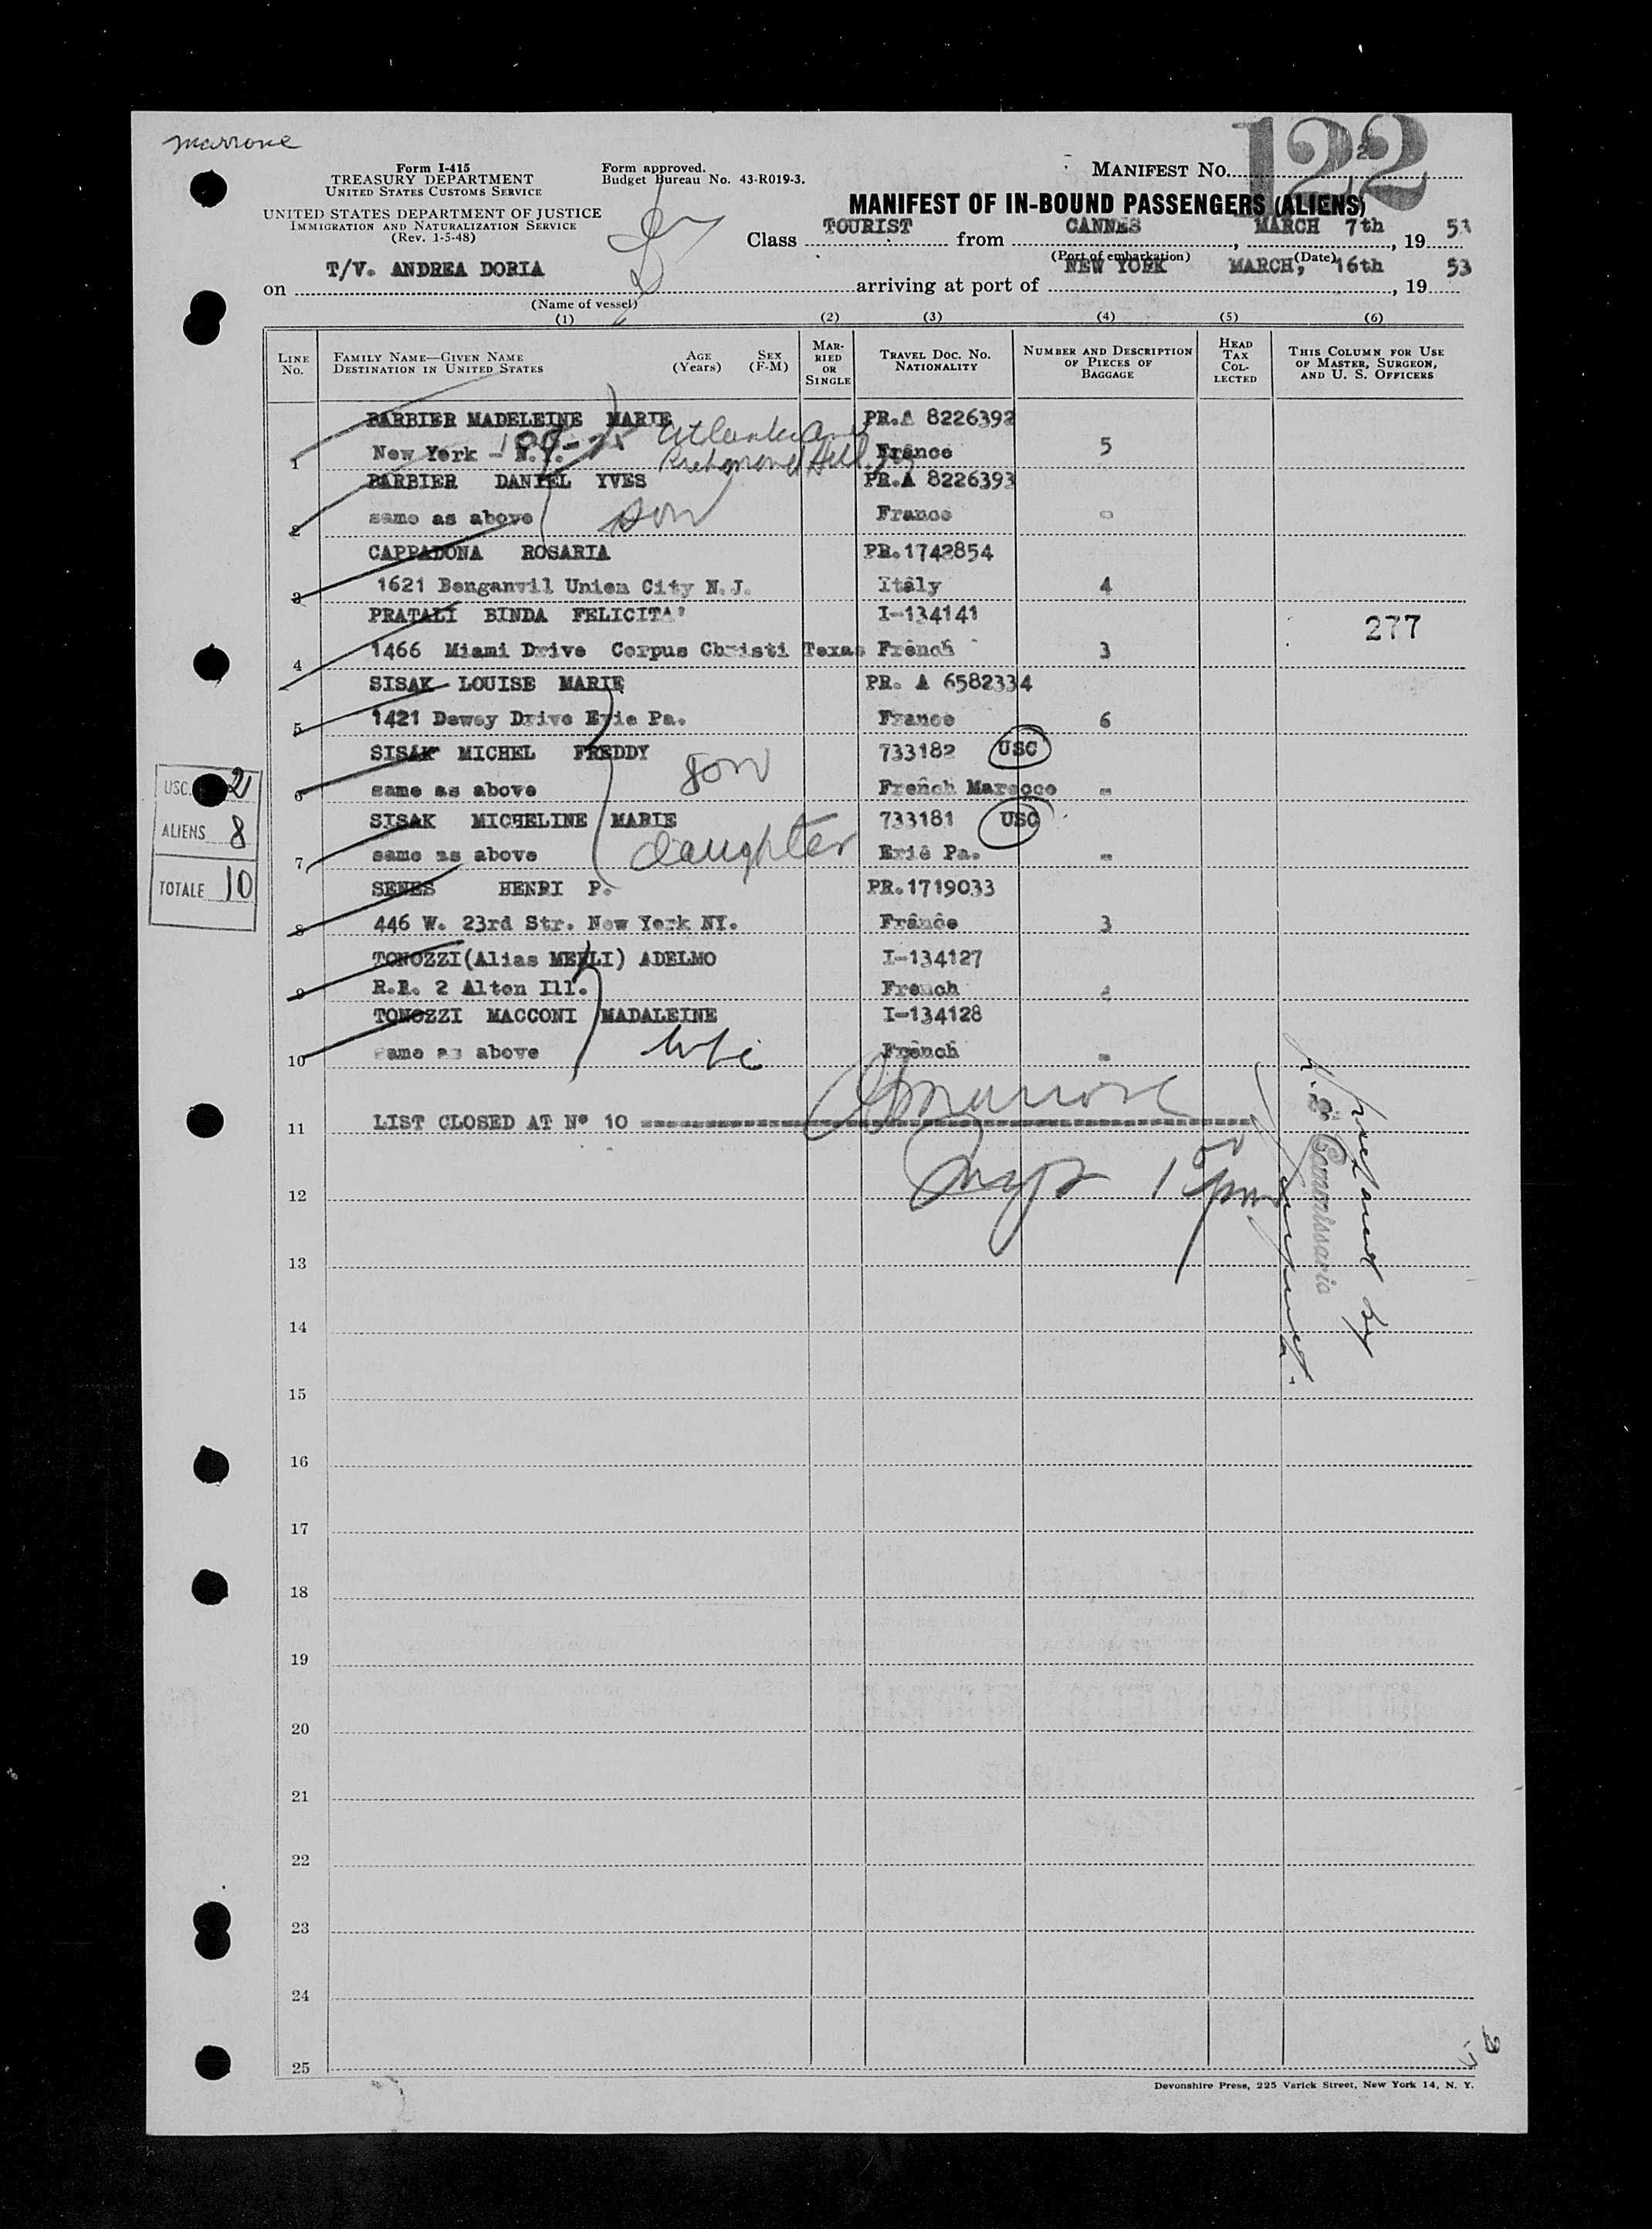 marrone
122
Form I-415
TREASURY DEPARTMENT
UNITED STATES CUSTOMS SERVICE
UNITED STATES DEPARTMENT OF JUSTICE
IMMIGRATION AND NATURALIZATION SERVICE
(Rev. 1-5-48)
Form approved.
Budget Bureau No. 43-R019-3.
MANIFEST NO.
MANIFEST OF IN-BOUND PASSENGERS (ALIENS)
Class TOURIST from CANNES, MARCH 7th, 1953
(Port of embarkation) (Date)
on T/V. ANDREA DORIA arriving at port of NEW YORK MARCH, 16th, 1953
(Name of vessel)
(1) (2) (3) (4) (5) (6)
LINE NO.
FAMILY NAME—GIVEN NAME DESTINATION IN UNITED STATES
AGE (Years)
SEX (F-M)
MARRIED OR SINGLE
TRAVEL DOC. NO. NATIONALITY
NUMBER AND DESCRIPTION OF PIECES OF BAGGAGE
HEAD TAX COLLECTED
THIS COLUMN FOR USE OF MASTER, SURGEON, AND U. S. OFFICERS
BARBIER MADELEINE MARIE PR.A 8226392
Atlantic Ave
1 New York - N.Y. Richmond Hill France 5
BARBIER DANIEL YVES PR.A 8226393
2 same as above son France -
CAPPADONA ROSARIA PR.1742854
3 1621 Benganvil Union City N.J. Italy 4
PRATALI BINDA FELICITA' I-134141
277
4 1466 Miami Drive Corpus Christi Texas French 3
SISAK LOUISE MARIE PR. A 6582334
5 1421 Dewey Drive Erie Pa. France 6
SISAK MICHEL FREDDY 733182 USC
6 same as above son French Marocco -
SISAK MICHELINE MARIE 733181 USC
7 same as above daughter Erie Pa. -
SENES HENRI P. PR.1719033
8 446 W. 23rd Str. New York NY. France 3
TONOZZI(Alias MERLI) ADELMO I-134127
9 R.R. 2 Alton Ill. French
TONOZZI MACCONI MADALEINE I-134128
10 same as above wife French -
USC. 2
ALIENS 8
TOTALE 10
Marrone
11 LIST CLOSED AT Nº 10
Commissario
12
13
14
15
16
17
18
19
20
21
22
23
24
25
Devonshire Press, 225 Varick Street, New York 14, N. Y.